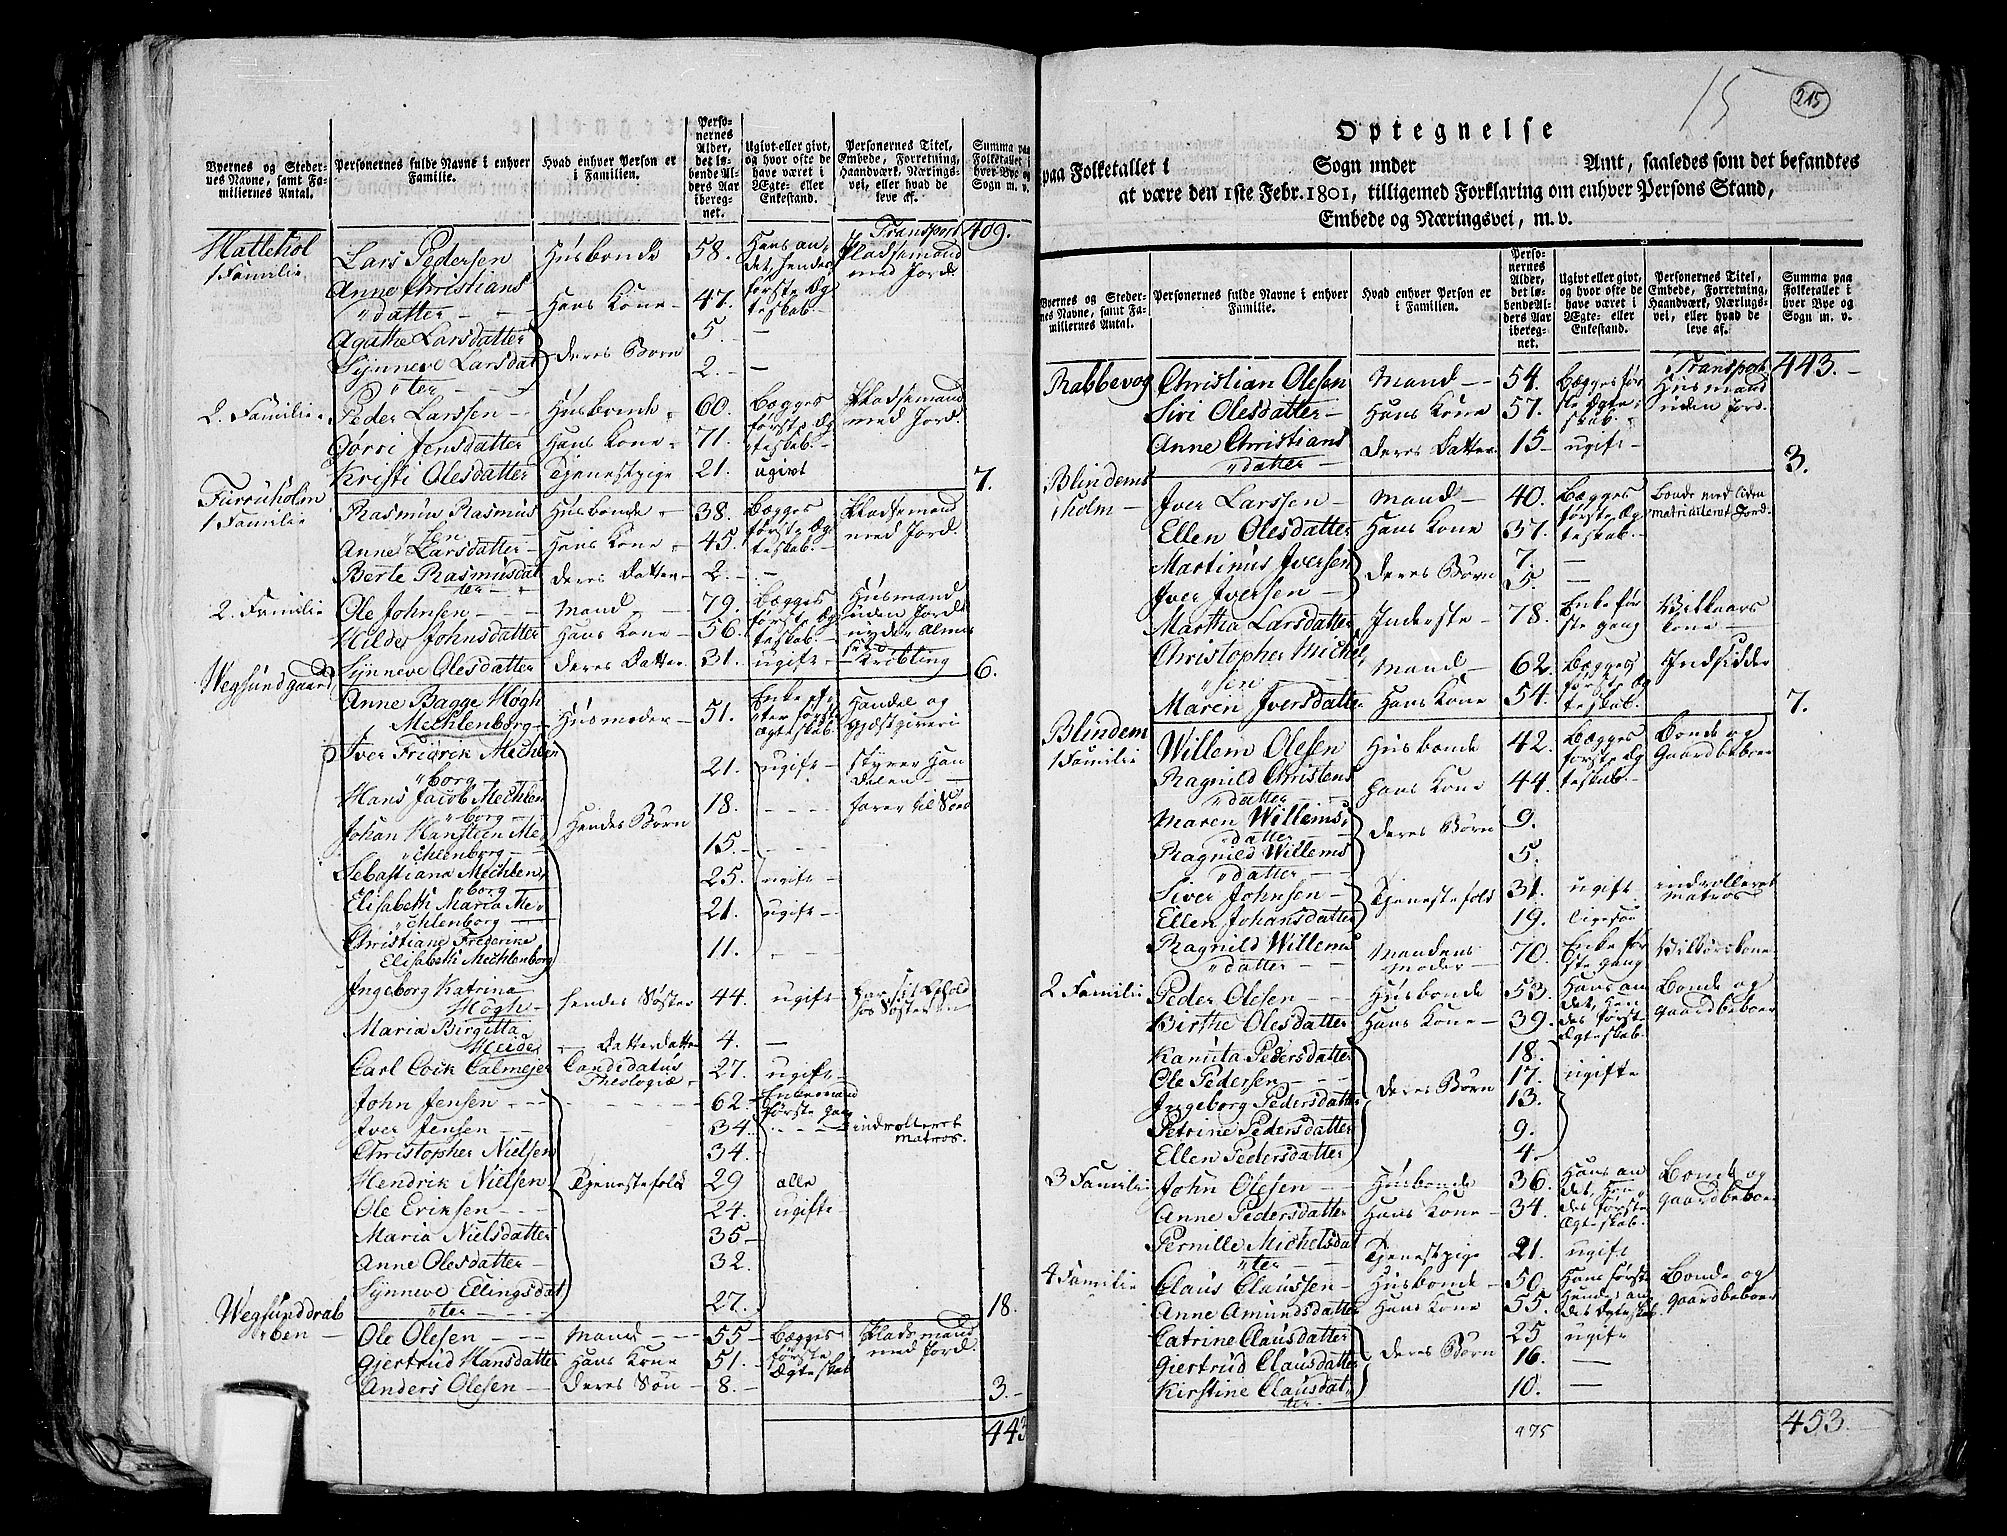 Byernes og Steder-
nes Navne, samt Fa-
miliernes Antal.
Personernes fulde Navne i enhver
Familie.
Hvad enhver Person er
i Familien.
Perso-
nernes
Alder,
det lø-
bende Al-
ders Aar
iberegnet.
Ugivt eller givt,
og hvor ofte de
have været i
Ægte- eller
Enkestand.
Personernes Titel,
Embede, Forretning,
Haandværk, Nærings-
vei, eller hvad de
leve af.
Summa paa
Folketallet i
hver Bye og
Sogn m. v.
Transport 409.
1 Familie
Lars Pedersen Husbonde 58. Hans an-
det, hendes
første Æg-
teskab. Pladsemand
med Jord.
Anne Christians
datter Hans Kone 47.
Agathe Larsdatter 5 —
Deres Børn
Synneve Larsdat
ter 2. —
2. Familie
Peder Larssen Husbonde 60. Begges
første Æg
teskab. Pladsemand
med Jord.
Gørri Jensdatter Hans Kone 71.
Kristi Olesdatter Tjenestpige 21. ugivt
7.
Furruholm
1 Familie
Rasmus Rasmus
sen Husbonde 38. Begges
første Æg
teskab. Pladsemand
med Jord.
Anne Larsdatter Hans Kone 45.
Berte Rasmusdat
ter Deres Datter 2.
2. Familie
Ole Johnsen Mand 79. Begges
første Æg
teskab. Husmand
uden Jord
nyder Almis
se
Hilde Johnsdatter Hans Kone 56.
Synneve Olesdatter Deres Datter 31. ugift Krøbling
6.
Wegsundgaard
Anne Bagge Høgh
Mechlenborg Husmoder 51. Enke ef-
ter første
Ægteskab. Handel og
Gjæstgiveri
Iver Fredrik Mechlen
borg 21. ugift styrer Han
delen
Hans Jacob Mechlen
borg 18. farer til Søes
Hendes Børn
Johan Hansteen Me-
chlenborg 15.
Sebastiana Mechlen,
borg 25. ugift
Elisabeth Maria Me-
chlenborg 21. ugift
Christiane Frederike
Elisabeth Mechlenborg 11.
Ingeborg Katrina
Høgh hendes Søster 44. ugift har sit Ophold
hos Søsteren
Maria Birgitta
Datterdatter 4. —
Carl Coik Calmejer Candidatus
Theologiæ 27. ugift
John Jensen 62. Enkemand
første gang
Iver Jensen 34. indrolleret
matros.
Christopher Nielsen 34.
Hendrik Nielsen Tjenestefolk 29 alle
ugifte
Ole Eriksen 24.
Maria Nielsdatter 35
Anne Olesdatter 32.
Synneve Ellingsdat
ter 27.
18.
Wegsunddrab
ben
Ole Olesen Mand 55 Begges
første
Ægteskab Pladsmand
med Jord.
Gjertrud Hansdatter Hans Kone 51.
Anders Olesen Deres Søn 8.
3.
443
15
215
Optegnelse
paa Folketallet i Sogn under Amt, saaledes som det befandtes
at være den 1ste Febr. 1801, tilligemed Forklaring om enhver Persons Stand,
Embede og Næringsvei, m. v.
Byernes og Steder-
nes Navne, samt Fa-
miliernes Antal.
Personernes fulde Navne i enhver
Familie.
Hvad enhver Person er
i Familien.
Perso-
nernes
Alder,
det lø-
bende Al-
ders Aar
ibereg-
net.
Ugivt eller givt,
og hvor ofte de
have været i
Ægte- eller
Enkestand.
Personernes Titel,
Embede, Forretning,
Haandværk, Nærings-
vei, eller hvad de
leve af.
Summa paa
Folketallet i
hver Bye og
Sogn m. v.
Transport 443.
Rabbevog Christian Olesen Mand 54. Begges før
ste Ægte
skab. Husmand
uden Jord.
Siri Olesdatter Hans Kone 57.
Anne Christians
datter Deres Datter 15 ugift
3.
Blindems
holm
Iver Larssen Mand 40. Begges
første Æg
teskab. Bonde med liden
matriculeret Jord.
Ellen Olesdatter Hans Kone 37.
Martinus Iversen 7. —
Deres Børn
Iver Iversen 5. —
Martha Larsdatter Inderste 78. Enke før
ste gang Vilkaars
kone
Christopher Michel,
sen Mand 62. Begges
første Æg
teskab. Indsidder
Maren Iversdatter Hans Kone 54.
7.
Blindem
1 Familie
Willem Olesen Husbonde 42. Begges
første Æg
teskab. Bonde og
Gaardbeboer
Ragnild Christens
datter Hans Kone 44.
Maren Willems,
datter 9.
Deres Børn
Ragnild Willems
datter 5.
Siver Johnsen 31. ugift indrolleret
matros
Tjenestefolk
Ellen Johansdatter 19. ligesaa
Ragnild Willems
datter Mandens
Moder 70. Enke før
ste gang Vilkorskone
2 Familie Peder Olesen Husbonde 53. Hans an
det, hen
des første
Ægteskab. Bonde og
gaardbeboer
Birthe Olesdatter Hans Kone 39.
Kanuta Pedersdatter 18. ugifte
Ole Pedersen 17.
Deres Børn
Ingeborg Pedersdatter 13.
Petrine Pedersdatter 9.
Ellen Pedersdatter 4.
3 Familie John Olesen Husbonde 36. Hans an
det, hen
des første
Ægteskab. Bonde og
gaardbeboer
Anne Pedersdatter Hans Kone 34.
Pernille Michelsdat
ter Tjenestpige 21. ugift
4 Familie Claus Claussen Husbonde 50. Hans første
Hendes an
det Ægteskab. Bonde og
gaardbeboer
Anne Amundsdatter Hans Kone 55.
Catrine Clausdatter 25 ugift
Gjertrud Clausdatter Deres Børn 16. —
Kirstine Clausdat,
ter 10. —
475
453.